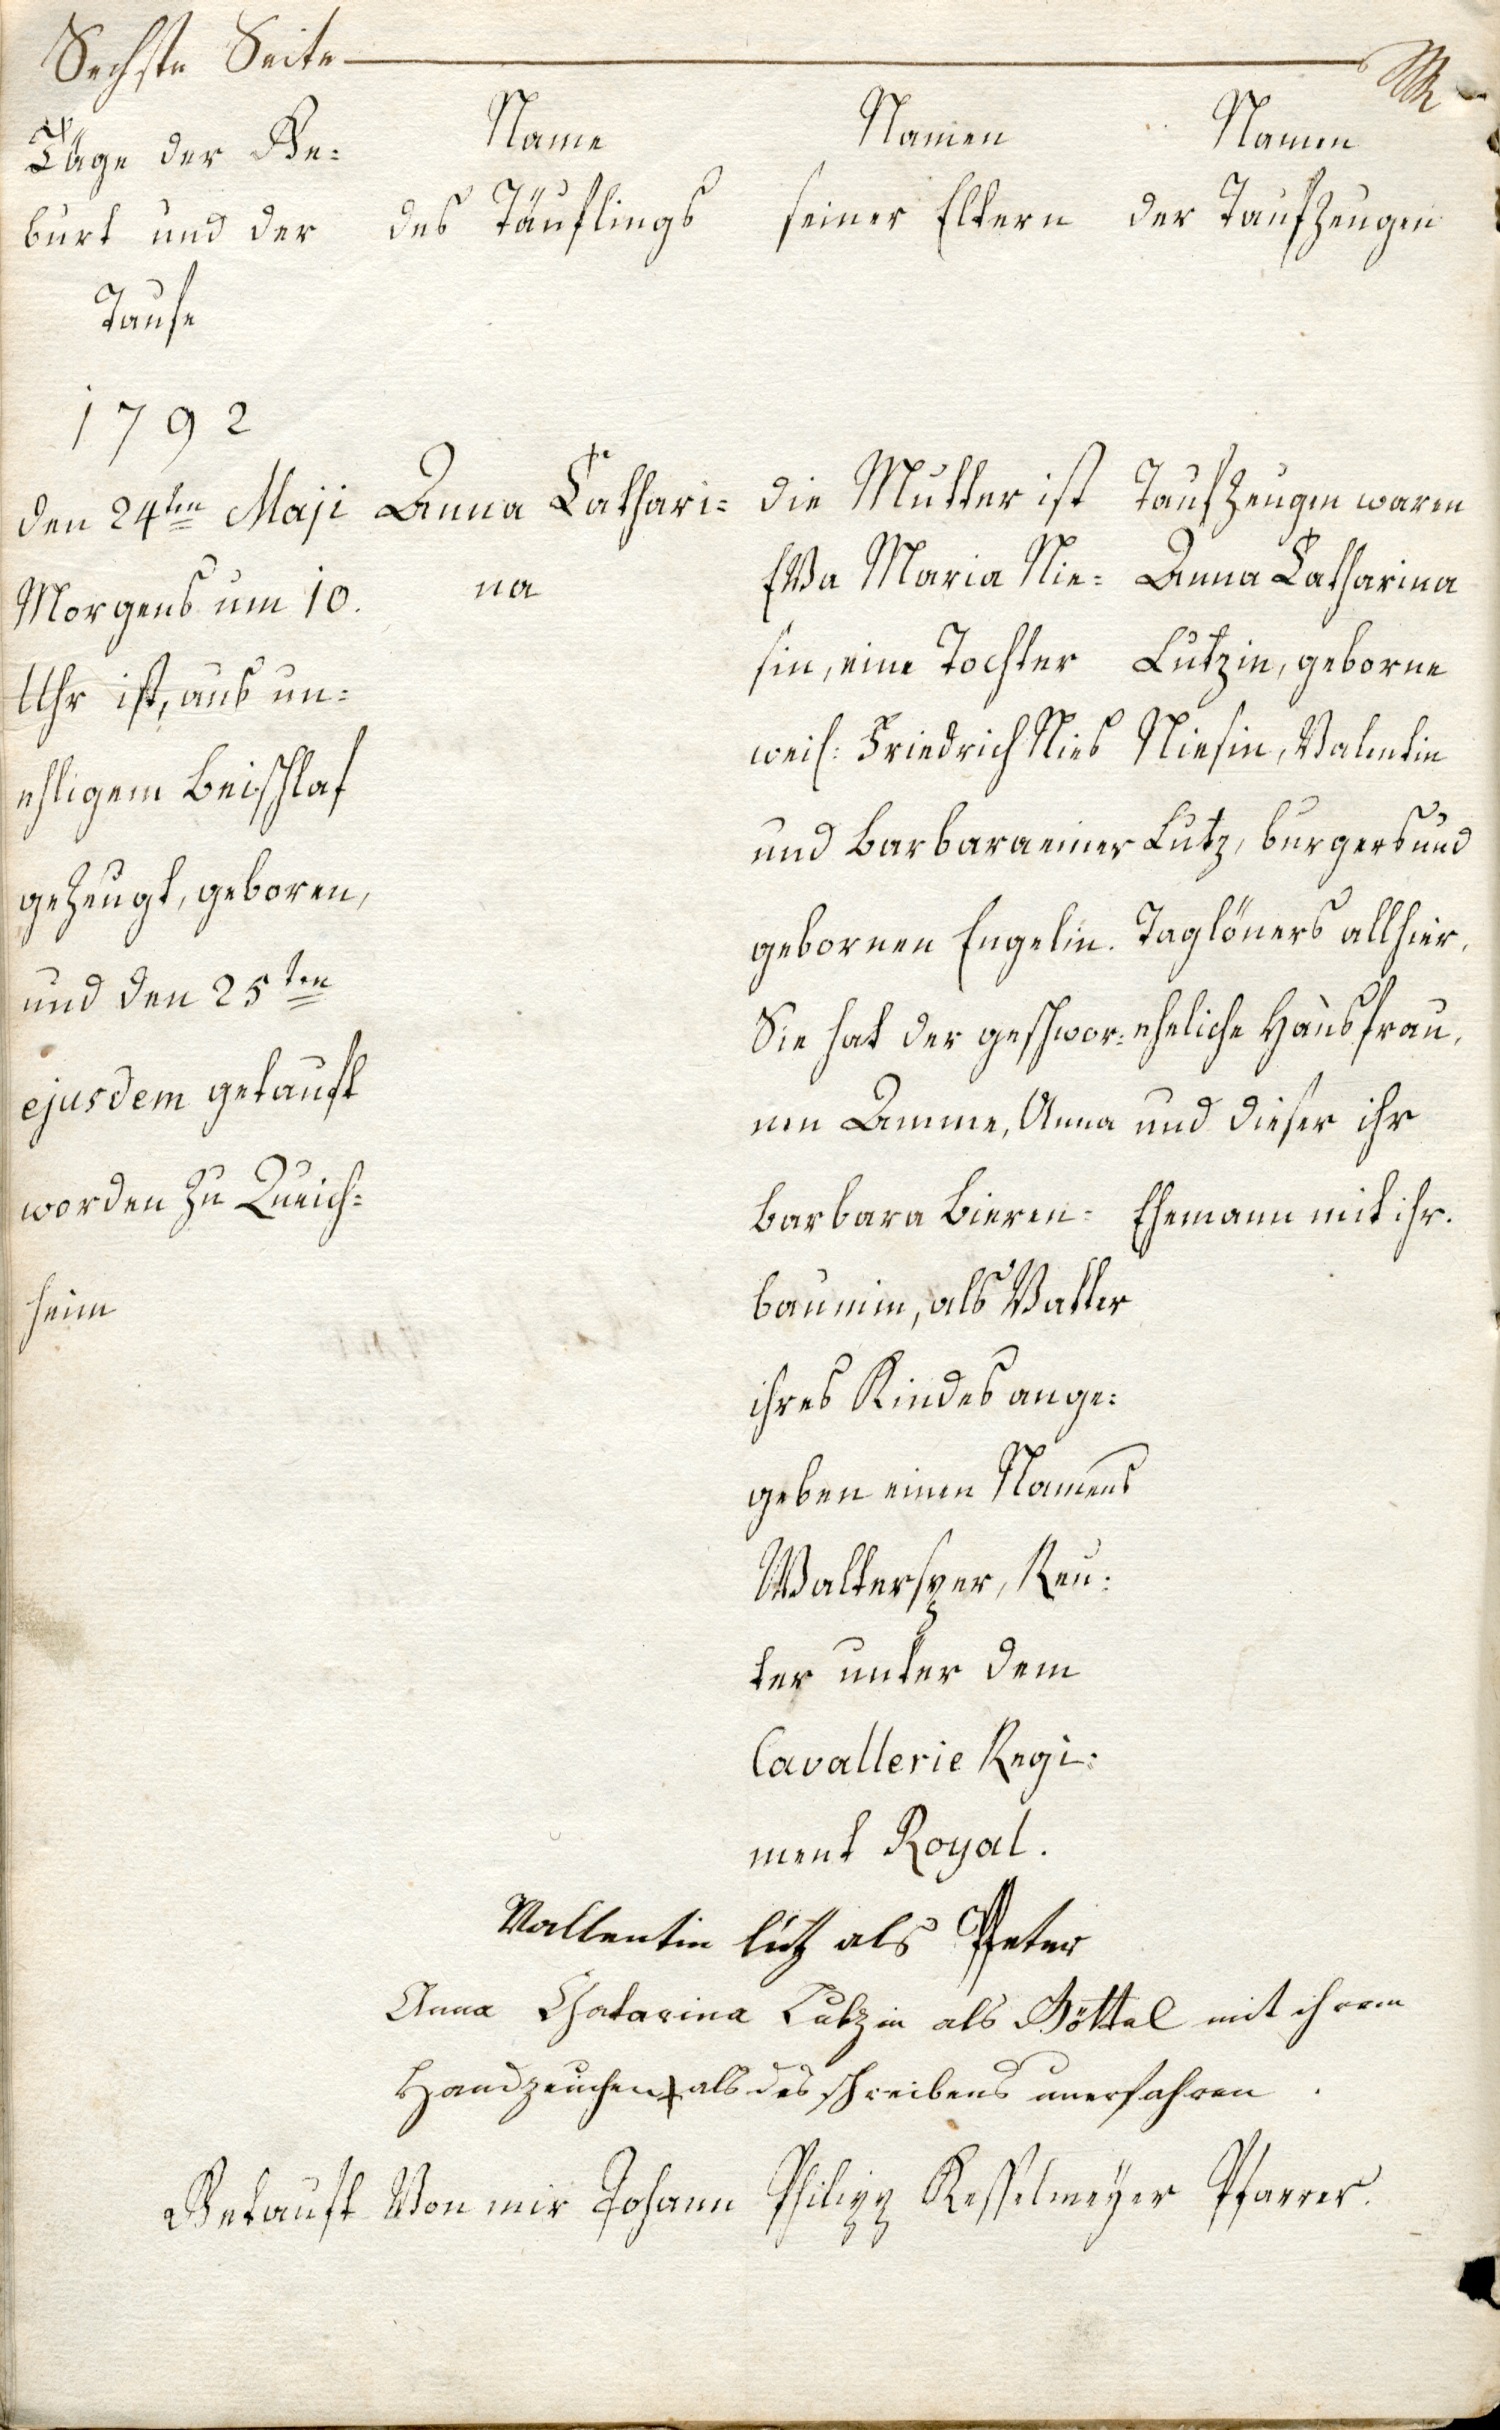 Sechste Seite
Täge der Ge=
burt und der
Taufe
Name
des Täuflings
Namen
seiner Eltern
Namen
der Taufzeugen
1792
den 24ten Maji
Morgens um 10.
Uhr ist, aus un=
ehligem Beischlaf
gezeugt, geboren,
und den 25ten
ejusdem getauft
worden zu Queich=
heim
Anna Cathari=
na
die Mutter ist
EVa Maria Nie=
sin, eine Tochter
weil: Friedrich Nies
und Barbara einer
gebornen Engelin.
Sie hat der geschwor=
nen Amme, Anna
Barbara Bieren=
baumin, als Vatter
ihres Kindes ange=
geben einen Namens
Waltersper, Reu=
ter unter dem
Cavallerie Regi=
ment Royal.
Taufzeugen waren
Anna Catharina
Lutzin, geborne
Niesin, Valentin
Lutz, burgers und
Taglöners allhier,
eheliche Hausfrau,
und dieser ihr
Ehemann mit ihr.
Vallentin lutz als Pfeter
Anna Chatarina Lutzin als Göttel mit ihrem
Handzeichen + als des schreibens unerfahren.
Getauft Von mir Johann Philipp Kesselmeÿer Pfarrer.